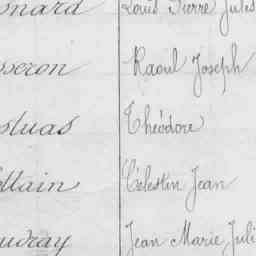 onard Louis Pierre Jules
sseron Raoul Joseph
sluas Théodore
ttain Célestin Jean
udray Jean Marie Juli